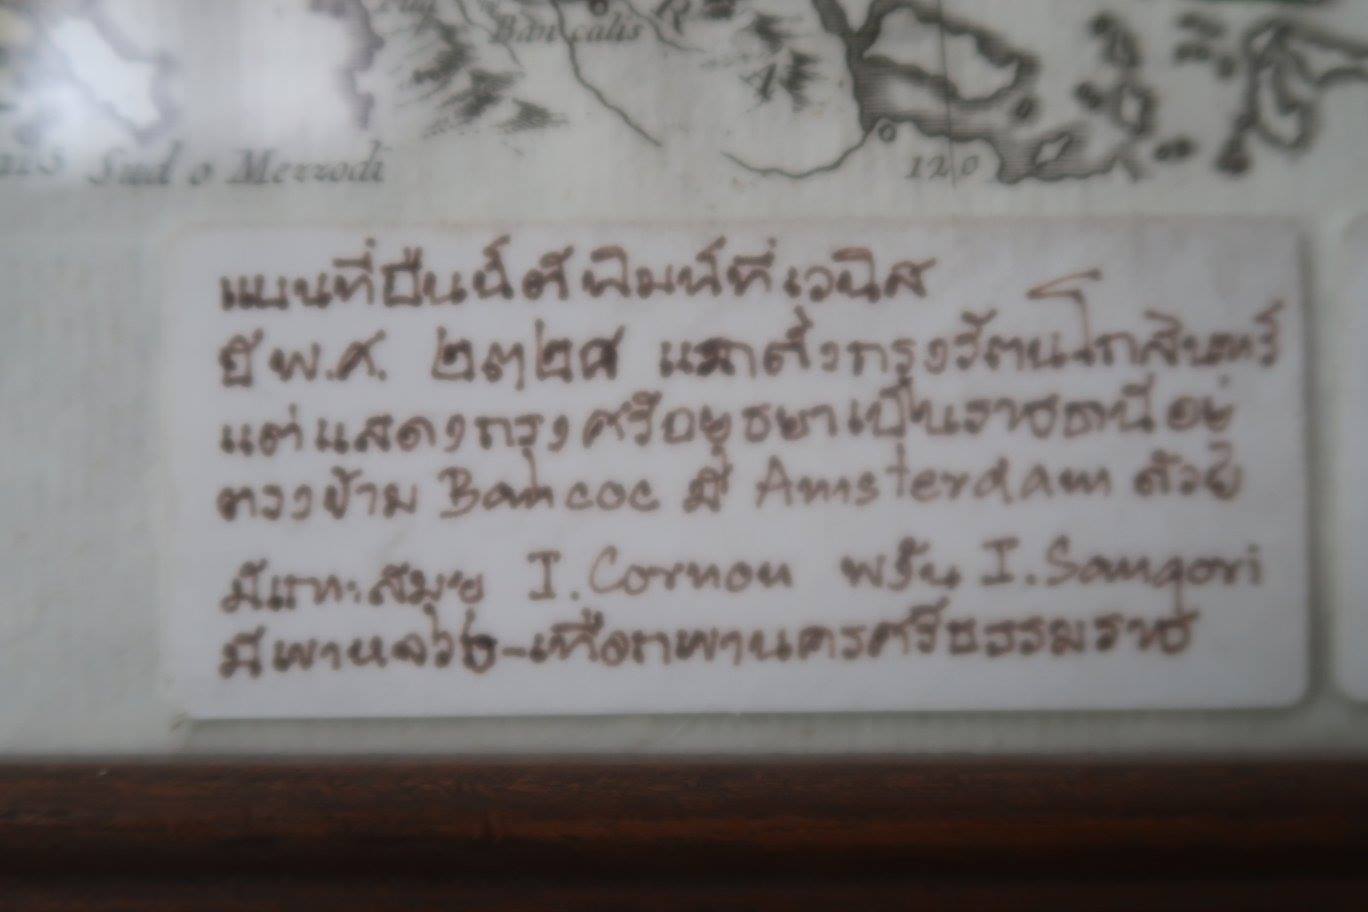 Bancalis
Sud o Mezzodi
120
แผนที่ปืนน์ตีพิมพ์ที่เวนิส
ปี พ.ศ. ๒๓๒๕ แรกตั้งกรุงรัตนโกสินทร์
แต่แสดงกรุงศรีอยุธยาเป็นราชธานีอยู่
ตรงข้าม Bancoc มี Amsterdam ด้วย
มีเกาะสมุย I. Cornon พรัน I. Sangori
มีพาหลวง-เทือกพานครศรีธรรมราช